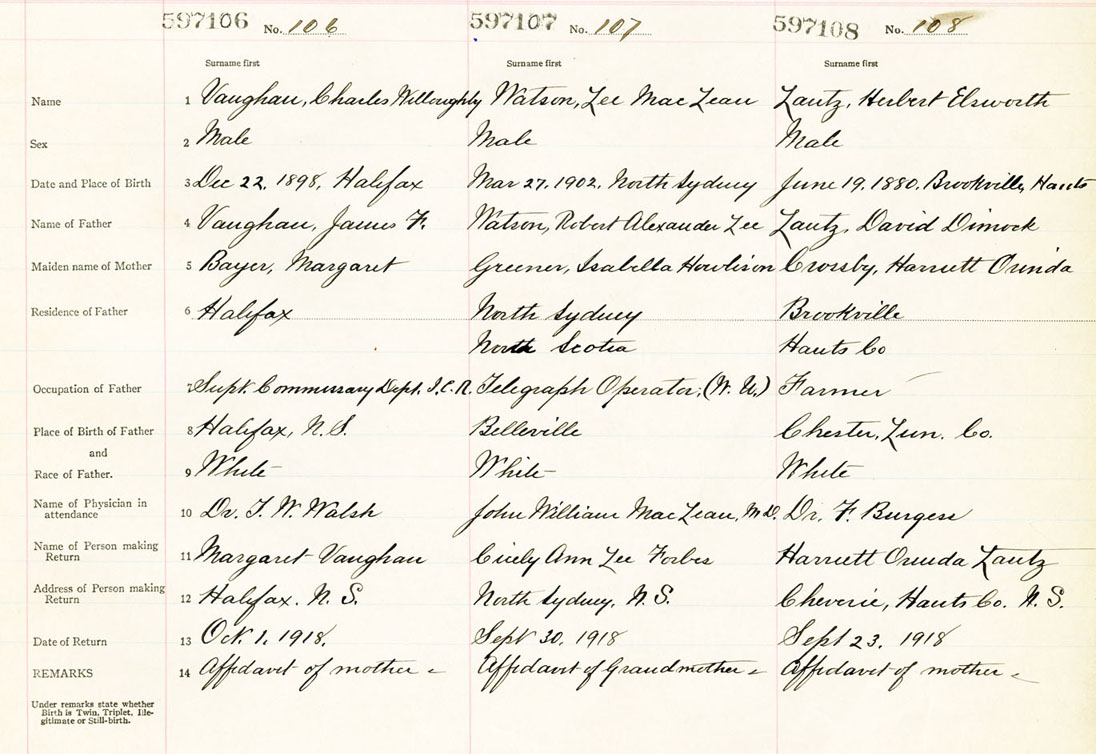 597106 No. 106 597107 No. 107 597108 No. 108
Surname first Surname first Surname first
Name 1 Vaughan, Charles Willoughby Watson, Lee MacLean Lantz, Herbert Elsworth
Sex 2 Male Male Male
Date and Place of Birth 3 Dec 22, 1898, Halifax Mar 27, 1902, North Sydney June 19, 1880, Brookville, Hants
Name of Father 4 Vaughan, James F. Watson, Robert Alexander Lee Lantz, David Dimock
Maiden name of Mother 5 Bayer, Margaret Greener, Isabella Howlison Crossby, Harriett Orinda
Residence of Father 6 Halifax North Sydney Brookville
North Scotia Hants Co
Occupation of Father 7 Supt. Commissary Dept. I.C.R. Telegraph Operator. (W. U.) Farmer
Place of Birth of Father 8 Halifax, N.S. Belleville Chester, Lun. Co.
and
Race of Father. 9 White White White
Name of Physician in
attendance 10 Dr. T. W. Walsh John William MacLean, M.D. Dr. F. Burgess
Name of Person making
Return 11 Margaret Vaughan Cicely Ann Lee Forbes Harriett Orinda Lantz
Address of Person making
Return 12 Halifax. N. S. North Sydney, N.S. Cheverie, Hants Co. N. S.
Date of Return 13 Oct. 1, 1918. Sept 30, 1918 Sept 23, 1918
REMARKS 14 Affidavit of mother - Affidavit of Grandmother - Affidavit of mother -
Under remarks state whether
Birth is Twin, Triplet, Ille-
gitimate or Still-birth.